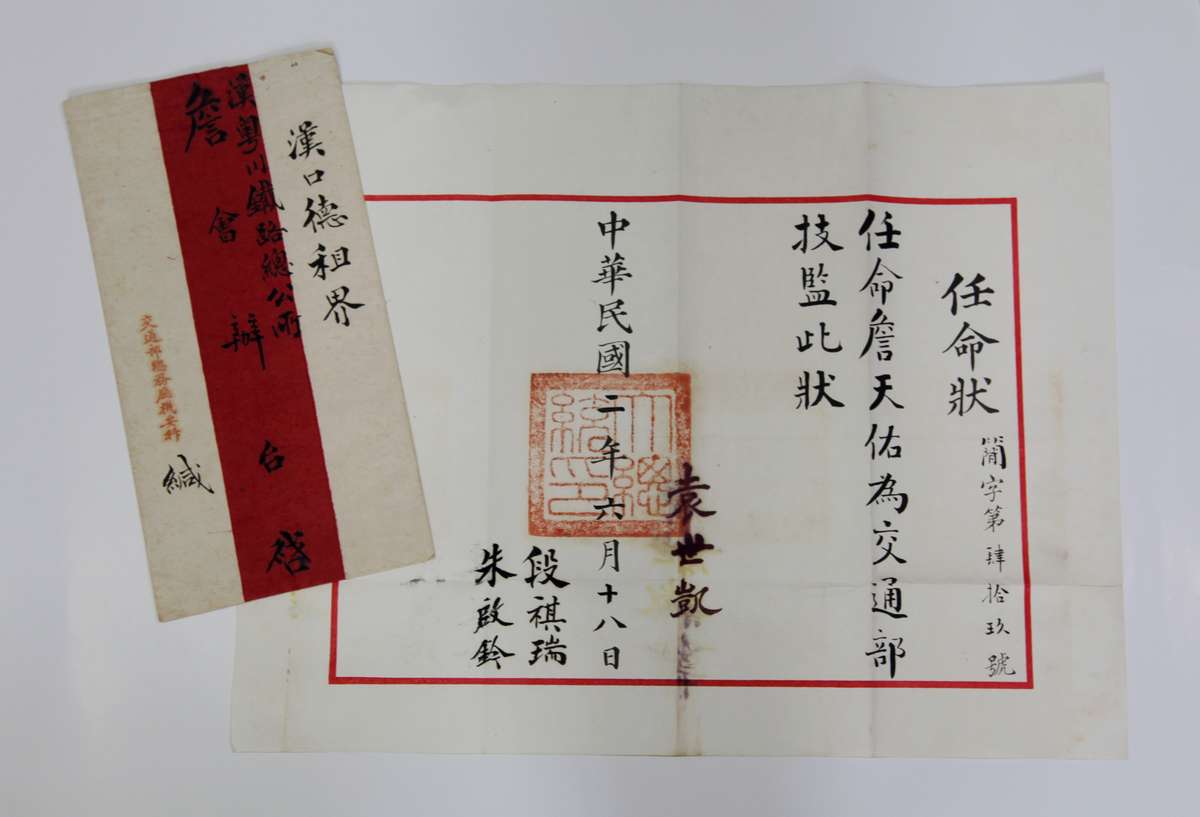 任命狀
簡字第肆拾玖號
任命詹天佑為交通部
技監此狀
袁世凱
中華民國二年六月十八日
大總統印
段祺瑞
朱啟鈐
漢口德租界
漢粵川鐵路總公所
詹會辦台啓
交通部總務廳機要科
緘